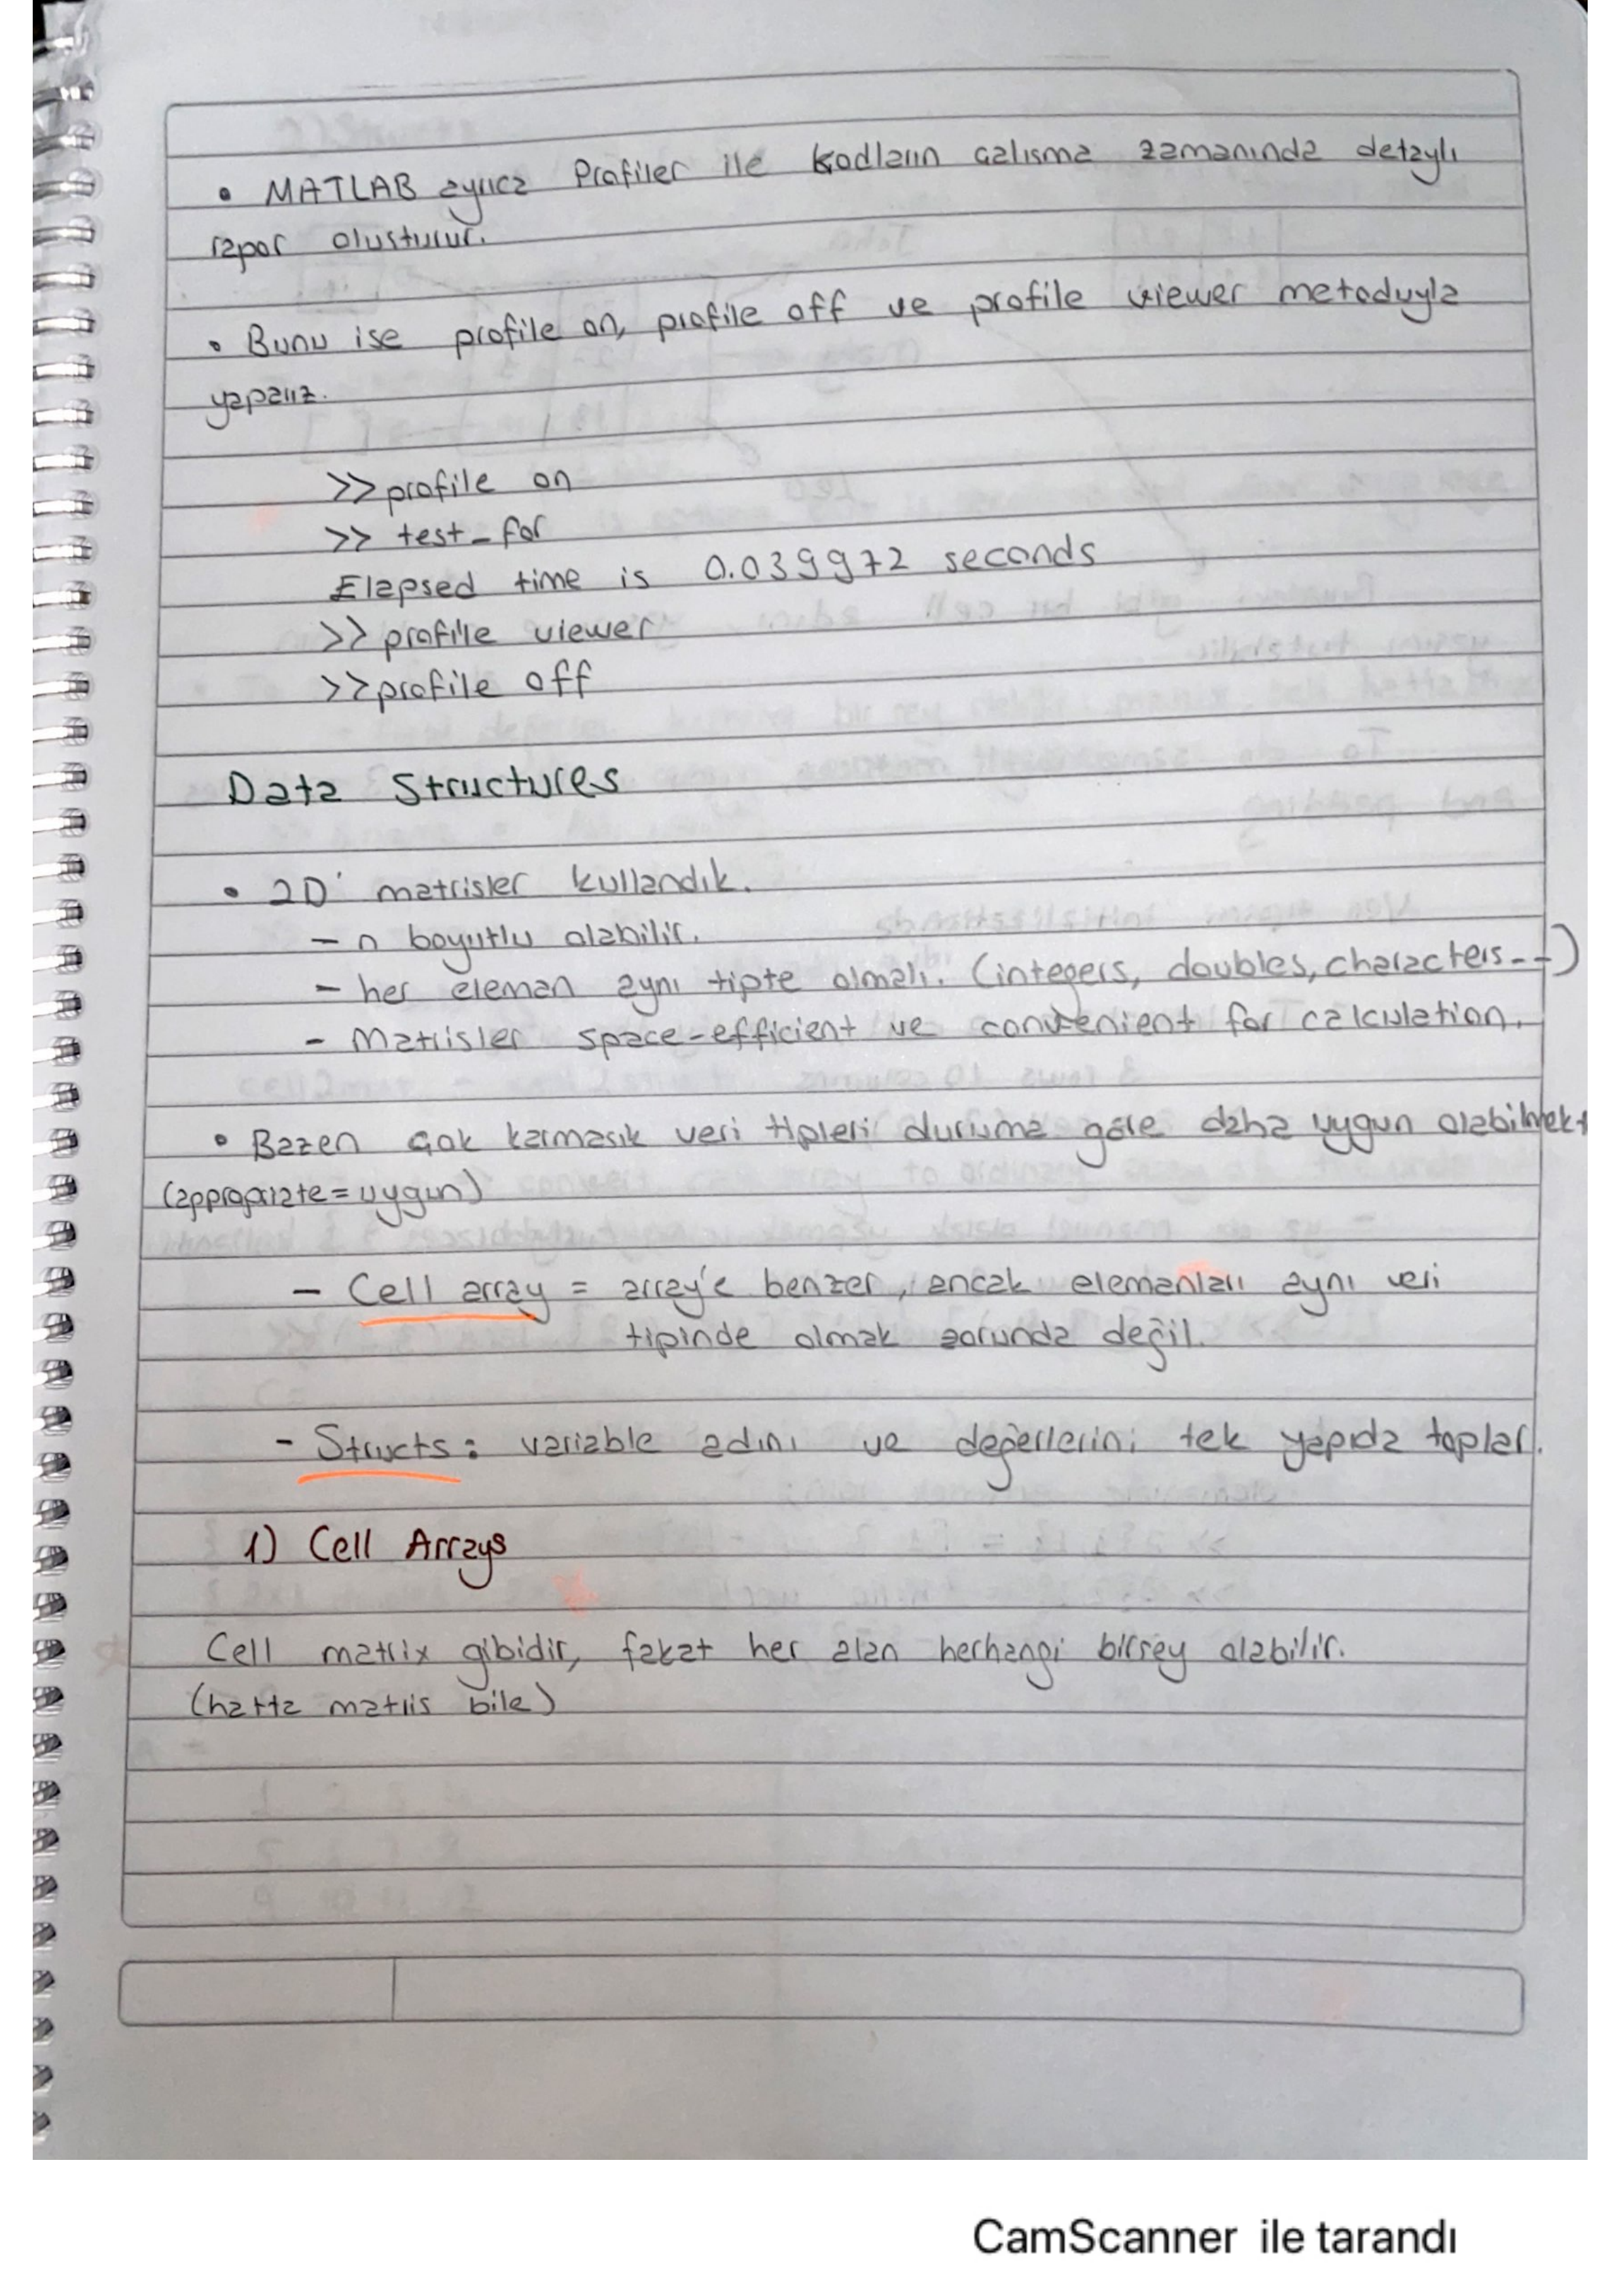 • MATLAB ayrıca Profiler ile kodların calısma zamanında detaylı
rapor olusturur.
• Bunu ise profile on, profile off ve profile viewer metoduyla
yaparız.
>> profile on
>> test_for
Elapsed time is 0.039972 seconds
>> profile viewer
>> profile off
Data Structures
• 2D' matrisler kullandık.
– n boyutlu olabilir.
– her eleman aynı tipte olmalı. (integers, doubles, characters---)
– Matrisler space-efficient ve convenient for calculation.
• Bazen çok karmasık veri tipleri duruma göre daha uygun olabilmekt
(appropriate = uygun)
– Cell array = array'e benzer, ancak elemanları aynı veri
tipinde olmak zorunda değil.
– Structs: variable adını ve değerlerini tek yapıda toplar.
1) Cell Arrays
Cell matrix gibidir, fakat her alan herhangi birsey olabilir.
(hatta matris bile)
CamScanner ile tarandı